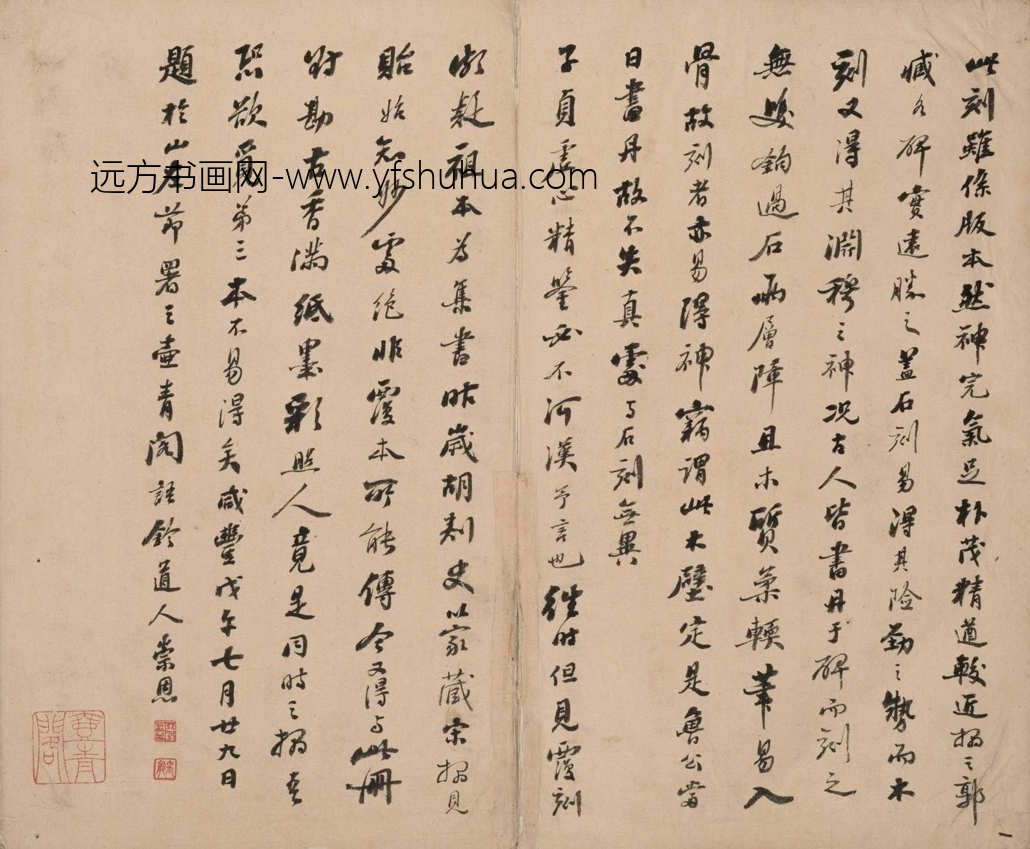 此刻雖係版本然神完氣足朴茂精遒較近搨之郭
臧各碑實遠勝之蓋石刻易得其險勁之勢而木
刻又得其淵穆之神況古人皆書丹于碑而刻之
無雙鉤過石兩層障且木質柔輭筆易入
骨故刻者亦易得神竊謂此木壁定是魯公當
日書丹故不失真處与石刻無異
子貞虛心精鑒必不河漢予言也往時但見覆刻
頗疑祖本為集書昨歲胡刺史以家藏宋搨見
貽始知妙處絕非覆本所能傳今又得与此冊
對勘古香滿紙墨彩照人竟是同時之搨矣
恐欲覓第三本不易得矣咸豐戊午七月廿九日
題於山左節署之壺青閣語鈴道人崇恩
远方书画网-www.yfshuhua.com